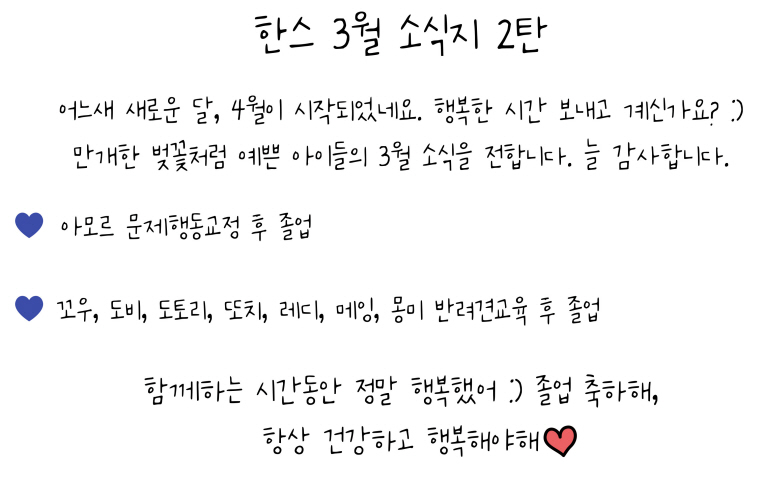 한스 3월 소식지 2탄
어느새 새로운 달, 4월이 시작되었네요. 행복한 시간 보내고 계신가요? :)
만개한 벚꽃처럼 예쁜 아이들의 3월 소식을 전합니다. 늘 감사합니다.
아모르 문제행동교정 후 졸업
꼬우, 도비, 도토리, 또치, 레디, 메잉, 몽미 반려견교육 후 졸업
함께하는 시간동안 정말 행복했어 :) 졸업 축하해,
항상 건강하고 행복해야해